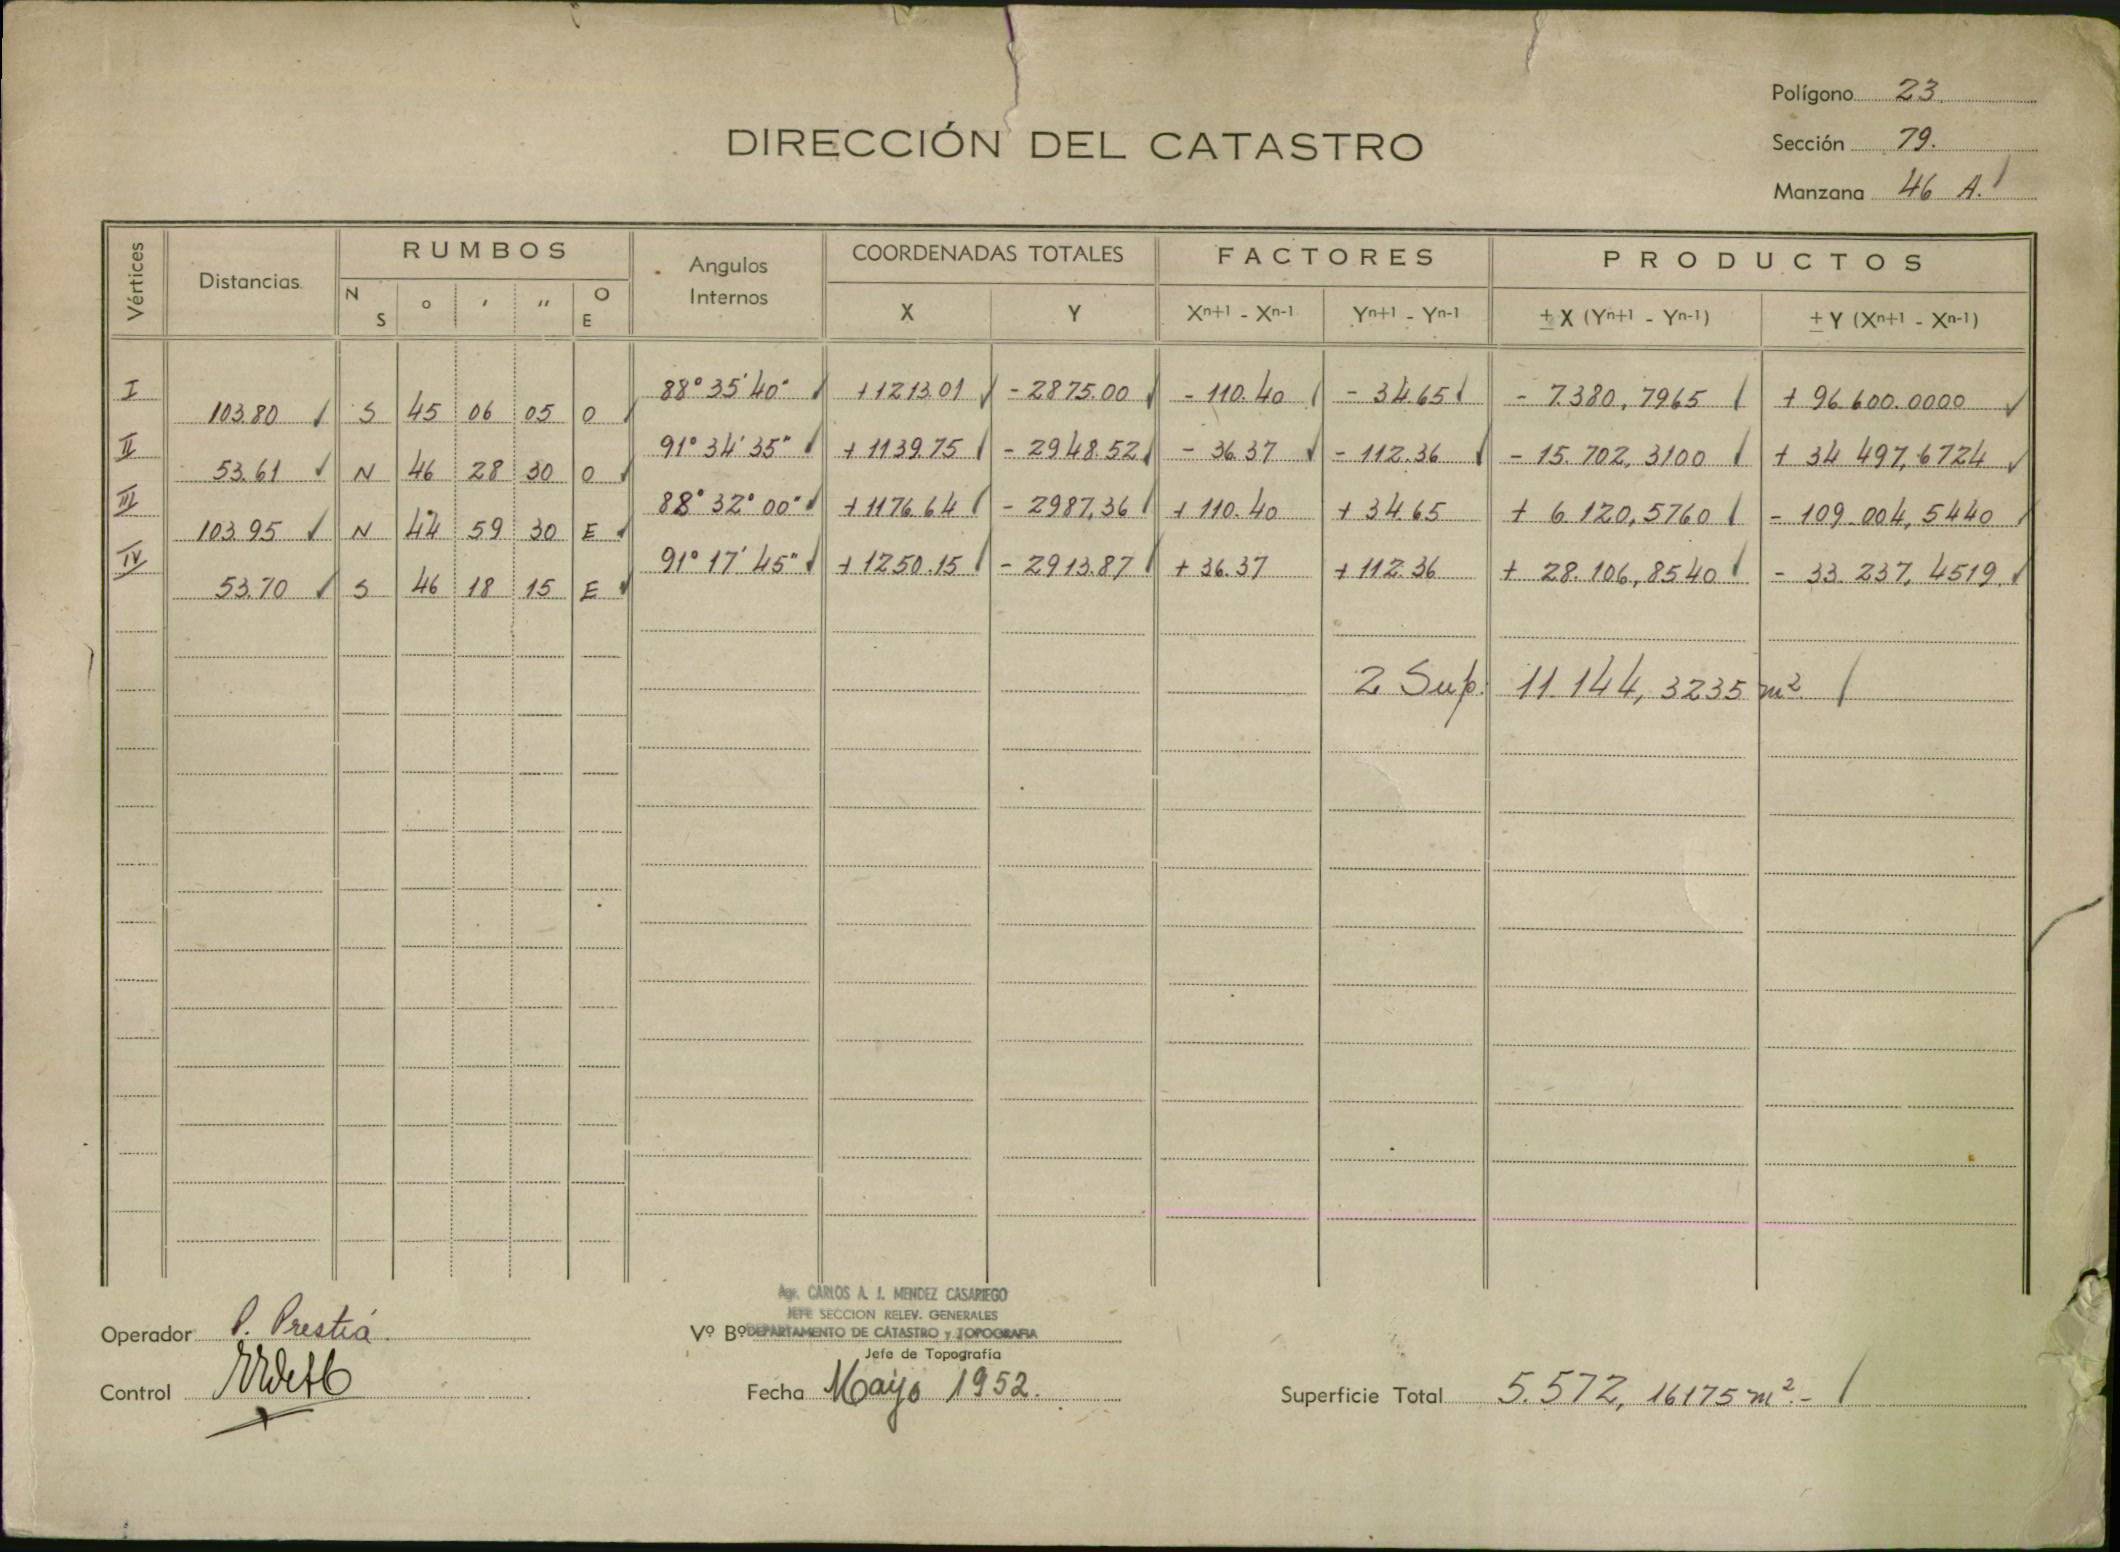 Polígono 23.
DIRECCIÓN DEL CATASTRO
Sección 79.
Manzana 46 A.
Vértices Distancias RUMBOS Angulos Internos COORDENADAS TOTALES FACTORES PRODUCTOS
N S ° ′ ″ O E X Y Xn+1 - Xn-1 Yn+1 - Yn-1 ± X (Yn+1 - Yn-1) ± Y (Xn+1 - Xn-1)
I 88° 35' 40" +1213.01 - 2875.00 - 110.40 - 34.65 - 7.380,7965 + 96.600.0000
103.80 S 45 06 05 O
II 91° 34' 35" + 1139.75 - 2948.52 - 36.37 - 112.36 - 15.702,3100 + 34 497,6724
53.61 N 46 28 30 O
III 88° 32° 00" + 1176.64 - 2987,36 + 110.40 + 34.65 + 6.120,5760 - 109.004,5440
103.95 N 44 59 30 E
IV 91° 17' 45" + 1250.15 - 2913.87 + 36.37 + 112.36 + 28.106,8540 - 33.237,4519
53.70 S 46 18 15 E
2 Sup. 11.144,3235 m²
Agr. CARLOS A. J. MENDEZ CASARIEGO
JEFE SECCION RELEV. GENERALES
Operador P. Prestiá Vº Bº DEPARTAMENTO DE CATASTRO y TOPOGRAFIA
Jefe de Topografía
Control Fecha Mayo 1952. Superficie Total 5.572,16175 m².-